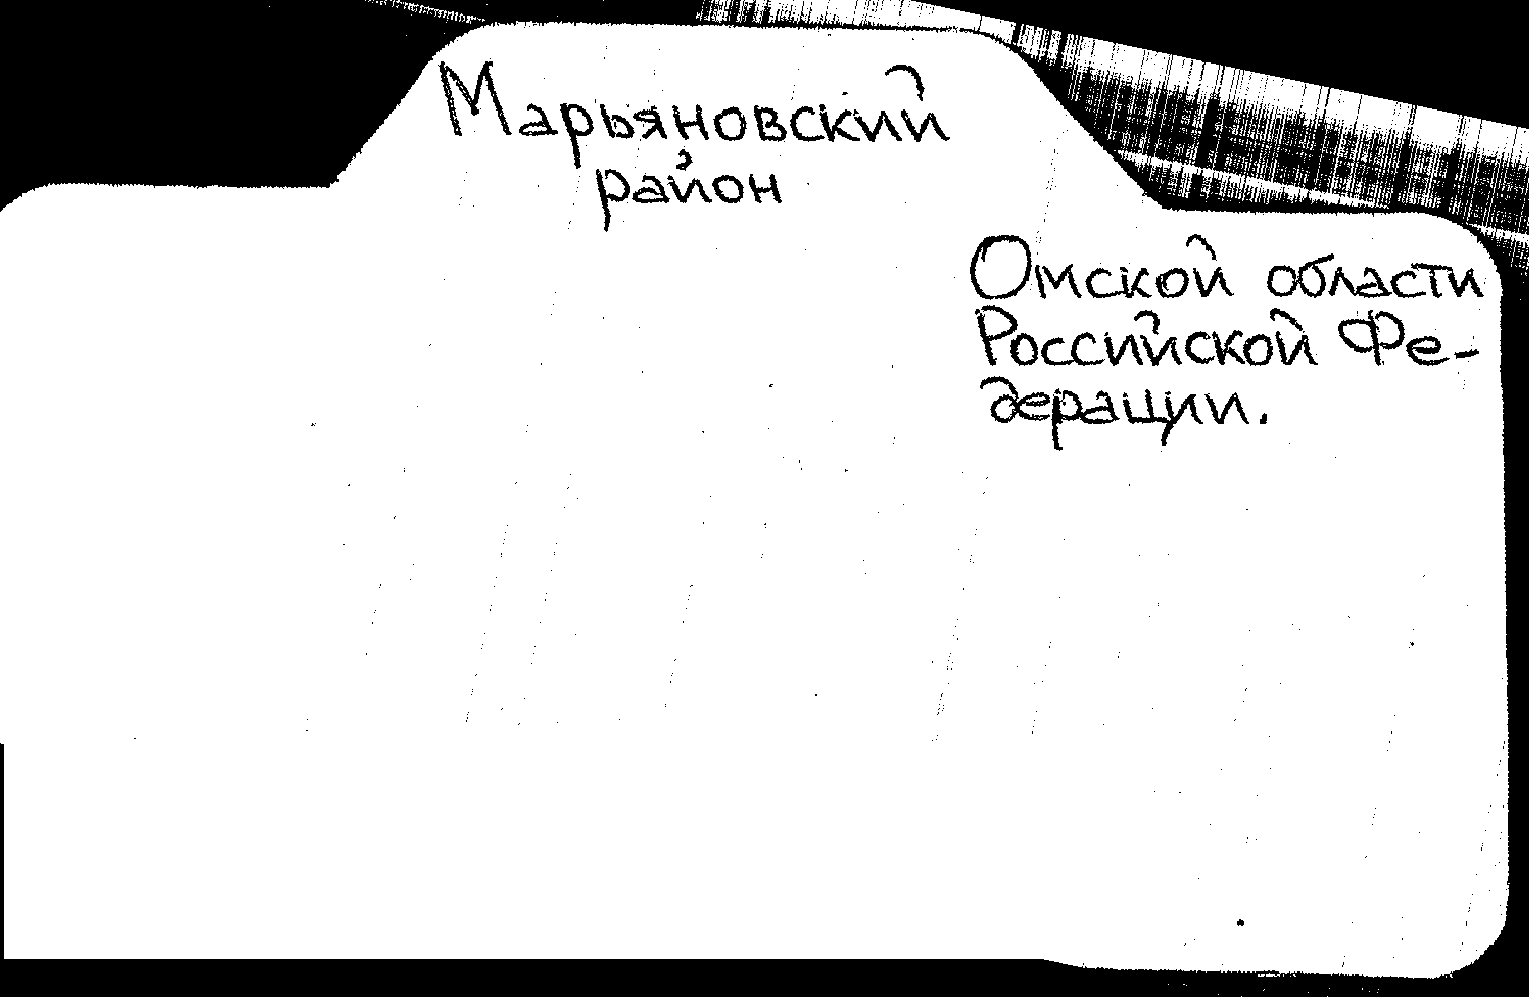 Марьяновский
район
Омской области
Российской Фе-
дерации.